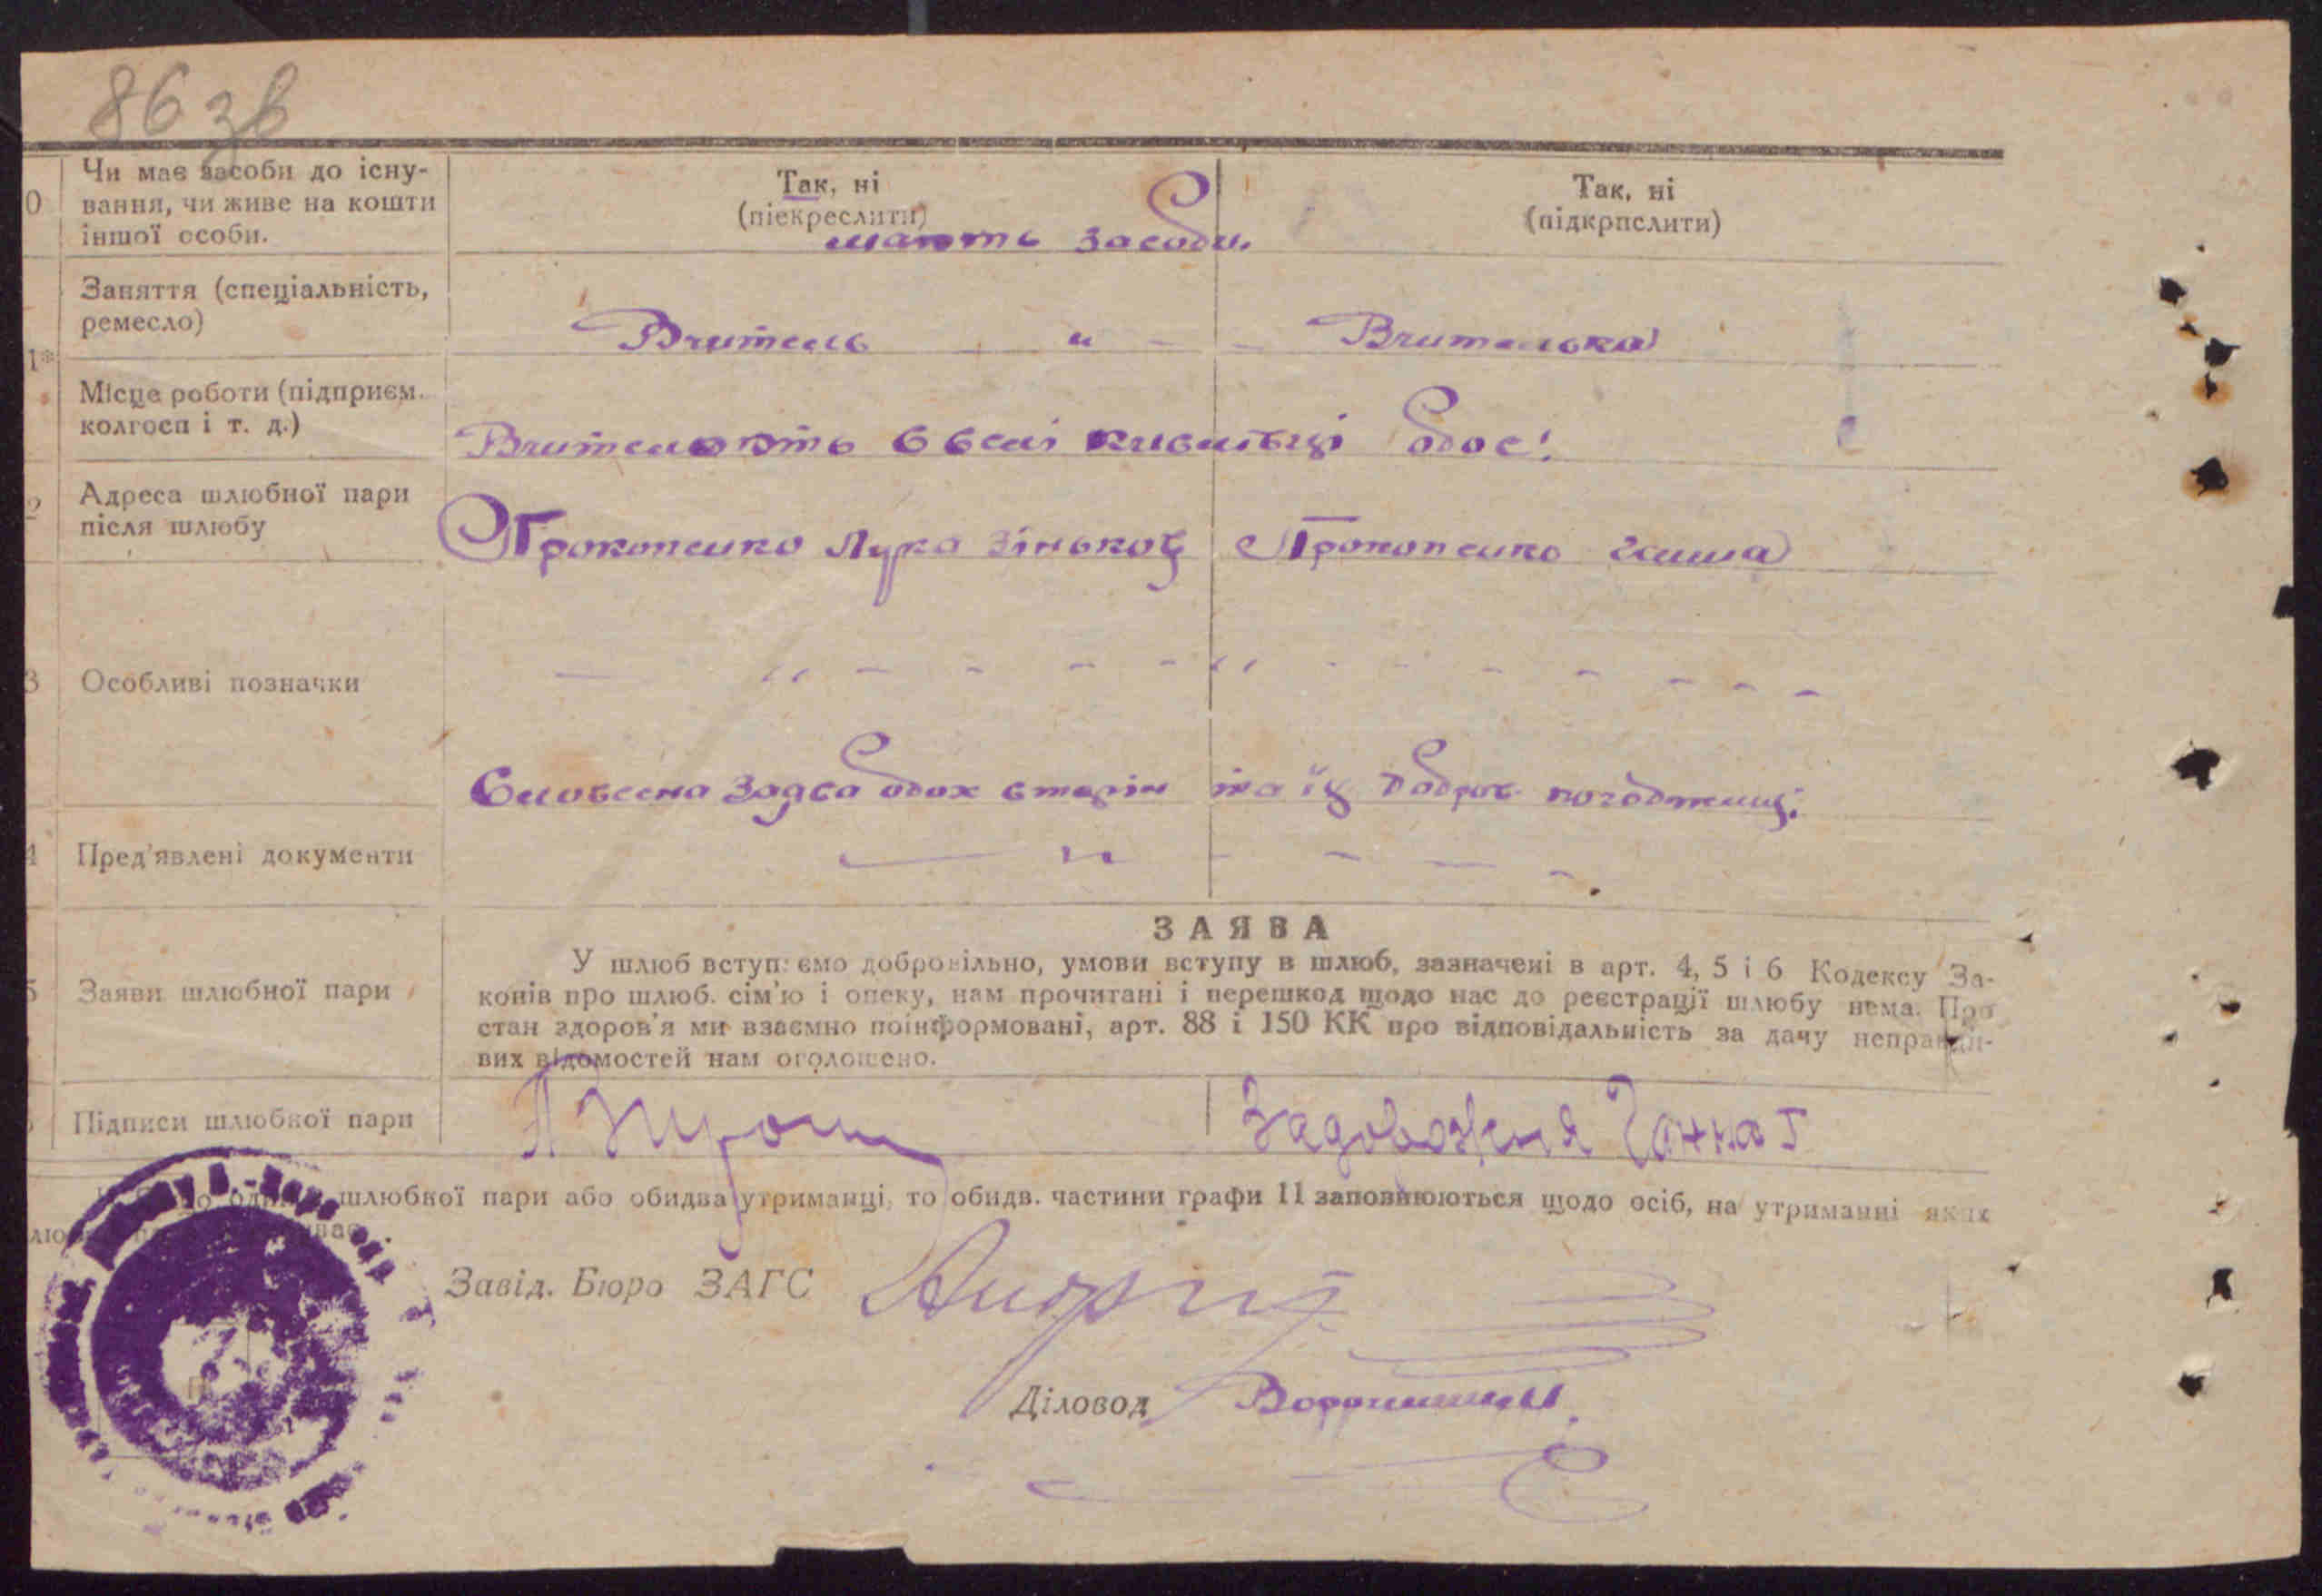 86 зв
0 Чи має засоби до існу-
вання, чи живе на кошти
іншої особи.
Так, ні
(піекреслити)
мають засоби.
Так, ні
(підкрпслити)
Заняття (спеціальність,
ремесло)
1*
Вчитель " Вчителька
Місце роботи (підприєм.
колгосп і т. д.)
Вчителюють в селі обоє!
2 Адреса шлюбної пари
після шлюбу
Прокопенко Лука Зіньков Прокопенко Ганна
3 Особливі позначки
Словесна заява обох сторін та їх добров.
4 Пред'явлені документи
ЗАЯВА
5 Заяви шлюбної пари
У шлюб вступаємо добровільно, умови вступу в шлюб, зазначені в арт. 4, 5 і 6 Кодексу За-
конів про шлюб. сім'ю і опеку, нам прочитані і перешкод щодо нас до реєстрації шлюбу нема. Про
стан здоров'я ми взаємно поінформовані, арт. 88 і 150 КК про відповідальність за дачу неправди-
вих відомостей нам оголошено.
Підписи шлюбної пари
Задорожня Ганна Г
шлюбної пари або обидва утриманці, то обидв. частини графи 11 заповнюються щодо осіб, на утриманні яких
Завід. Бюро ЗАГС
Діловод